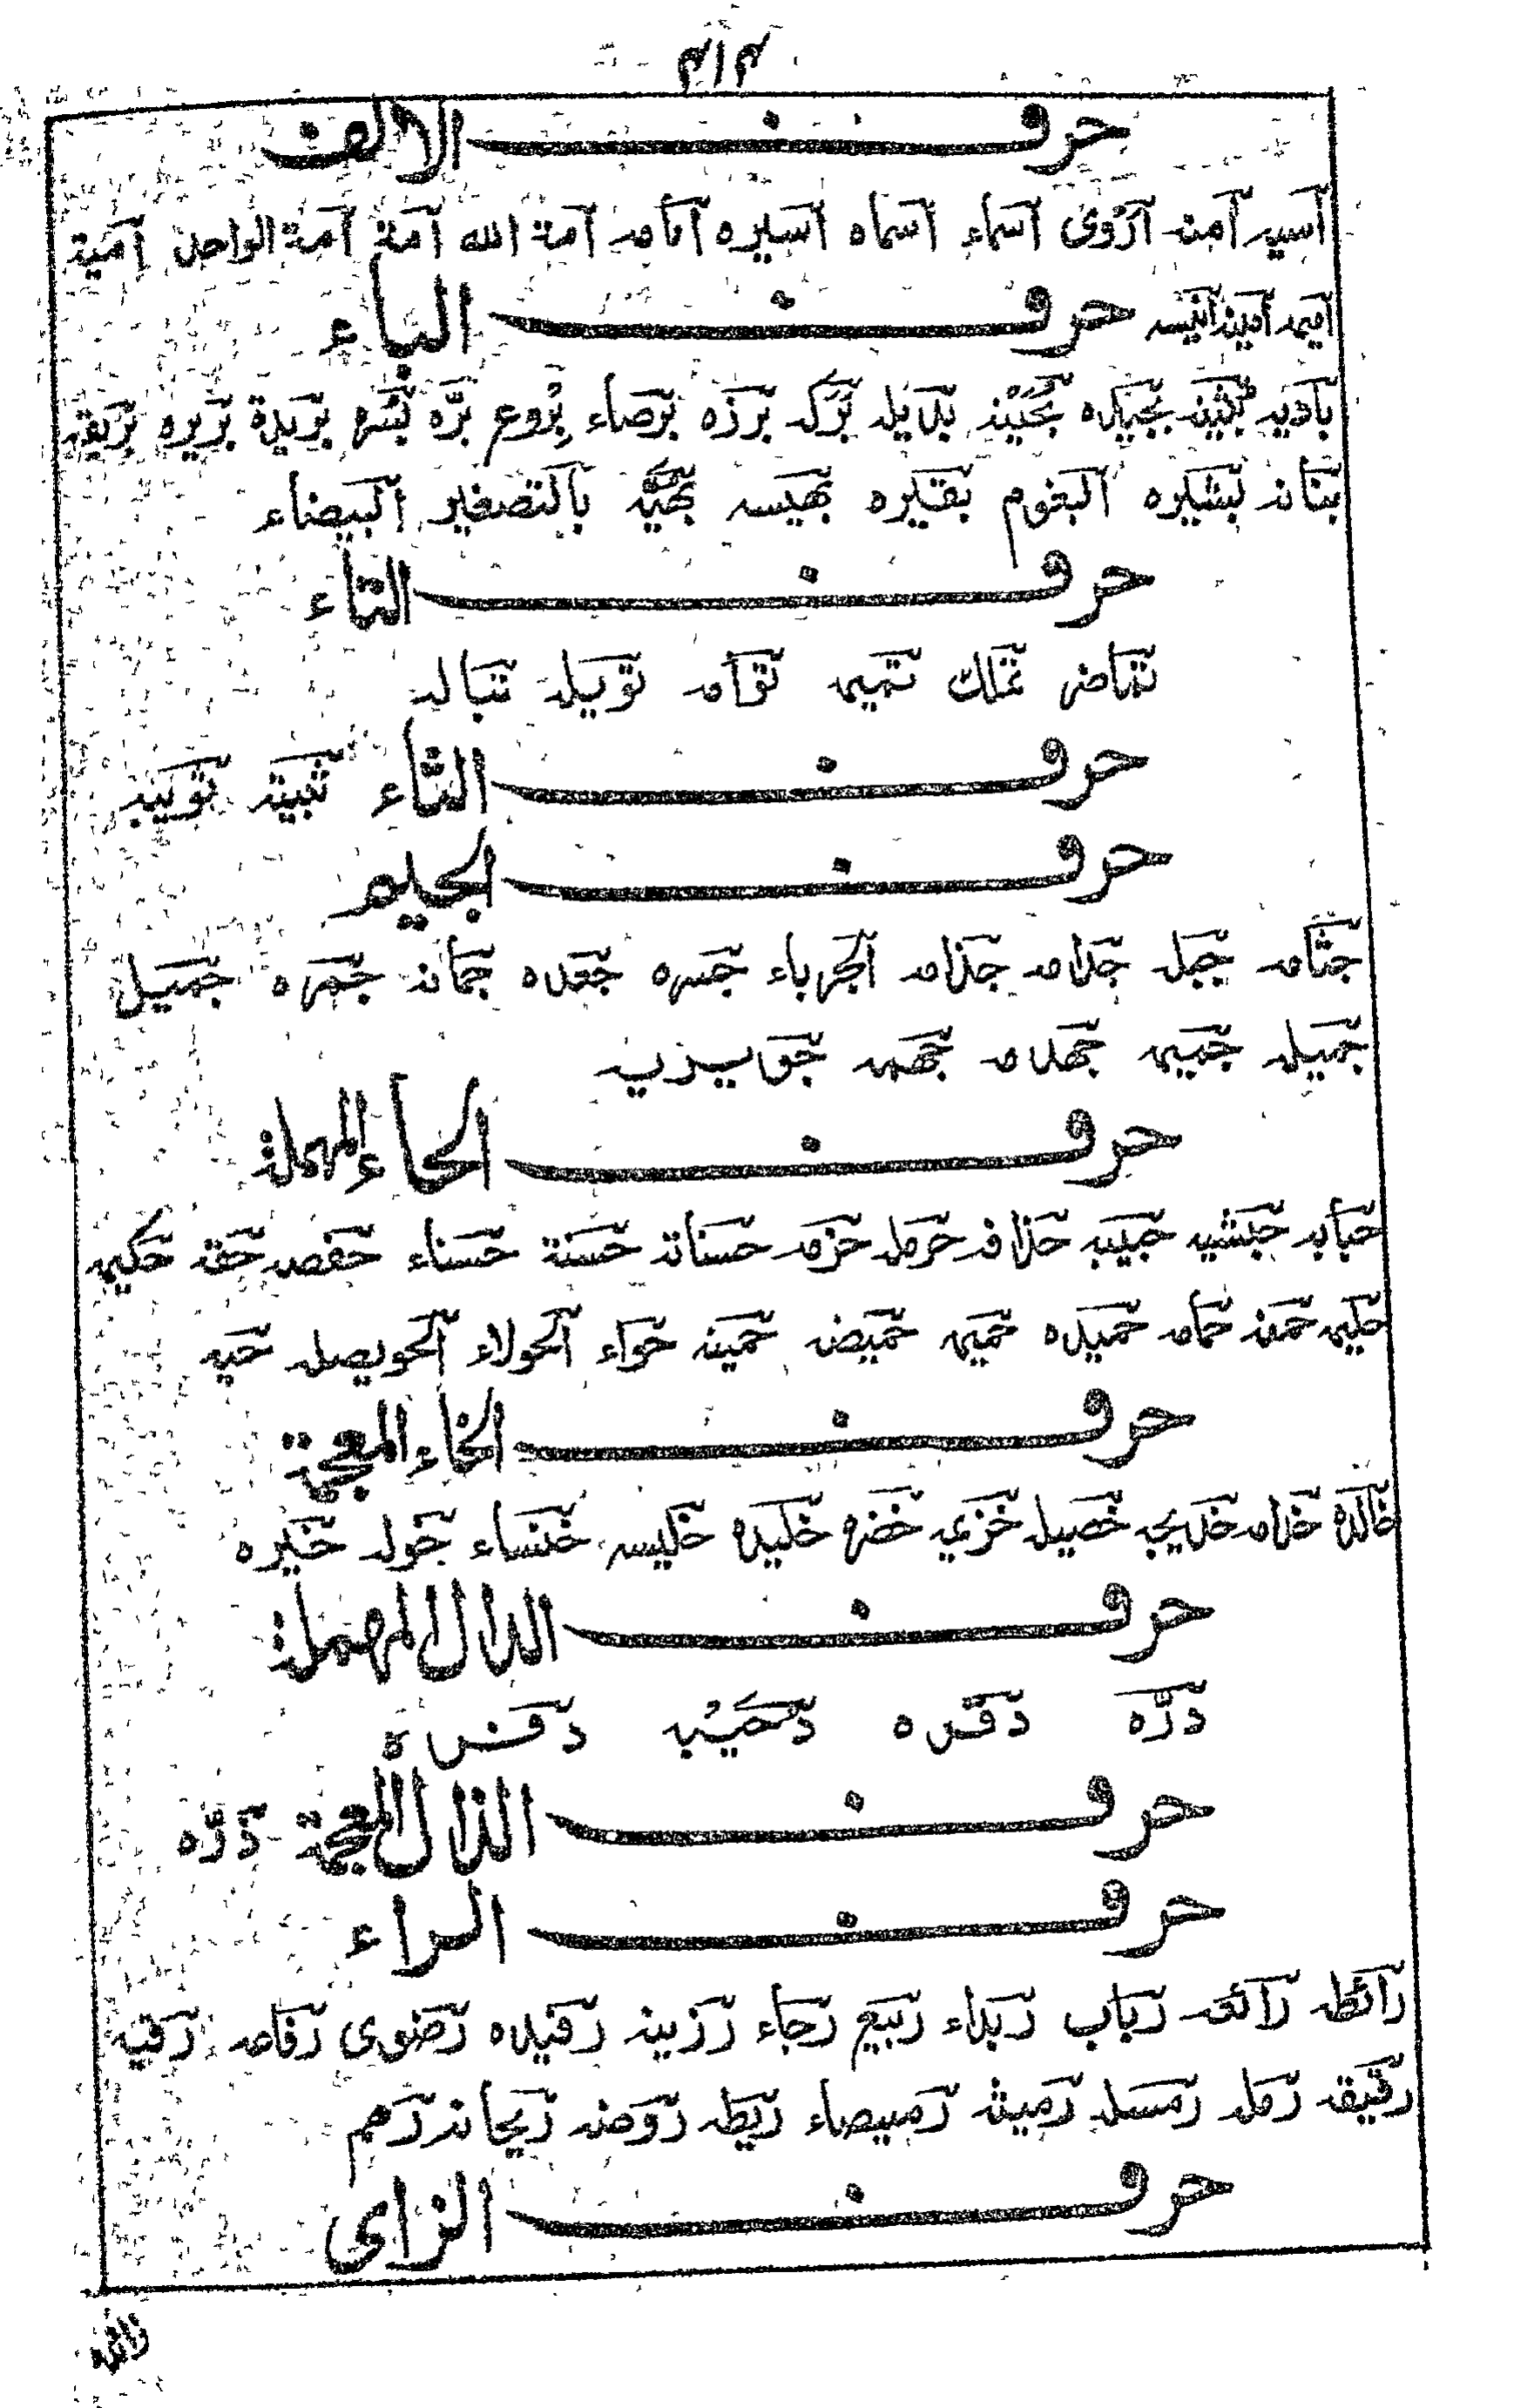 ۴۱۴
حرف الالف
آسیه آمنه اروی اسماء اسماه اسیره امامه امة الله امة امة الواحد امیة
امیمه امینه انیسه حرف الباء
بادیه بثینه بجیده بحینه بدیله برکه برزه برصاء بروع بره بسره بریدة بریره بریقه
بنانه بشیره البغوم بقیره بهیسه بهیه بالتصغیر البیضاء
حرف التاء
تماضر تملك تمیمه توامه تویله تباله
حرف الثاء ثبیته ثویبه
حرف الجیم
جثامه جبل جدامه جذامه الجرباء جسره جعده جمانه جمره جمیل
جمیله جمیمه جهدمه جهمه جویریه
حرف الحاء المهملة
حبابه حبشیه حبیبه حذافه حرمله حزمه حسانه حسنة حسناء حفصه حقه حکیمه
حلیمه حمنه حمامه حمیده حمیمه حمیضه حمینه حواء الحولاء الحویصله حیه
حرف الخاء المعجمة
خالده خدامه خدیجه خصیله خزیمه خضره خلیده خلیسه خنساء خوله خیره
حرف الدال المهملة
درّه دقره دحیبه
حرف الذال المعجمة ذرّه
حرف الراء
رائطه رائعه رباب ربداء ربیع رجاء رزینه رفیده رضوی رفاعه رقیه
رقیقه رمله رمیثه رمیصاء ریطه روضه ریحانه رهم
حرف الزای
زائده